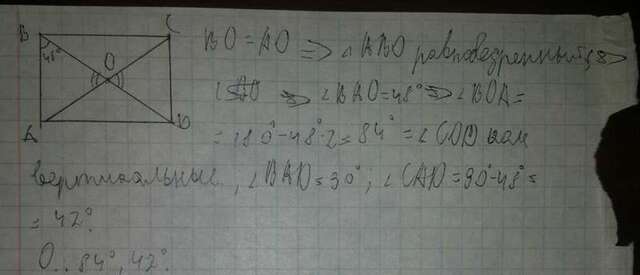 B C
48°
O
A D
BO = AO ⇒ ∠ ABO равнобедренный ⇒
⇒ ∠BAO = 48° ⇒ ∠BOA =
= 180° - 48°·2 = 84° = ∠COD как
вертикальные, ∠BAD = 90°; ∠CAD = 90° - 48° =
= 42°.
О.: 84°, 42°.